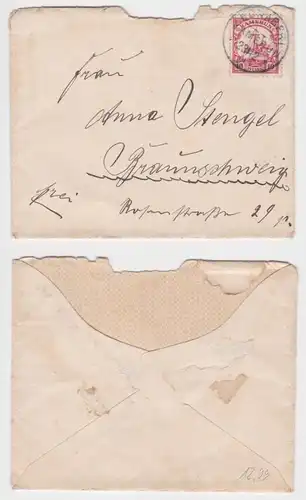 Frau
Anna Stengel
Braunschweig
frei
Rosenstraße 29
12,98